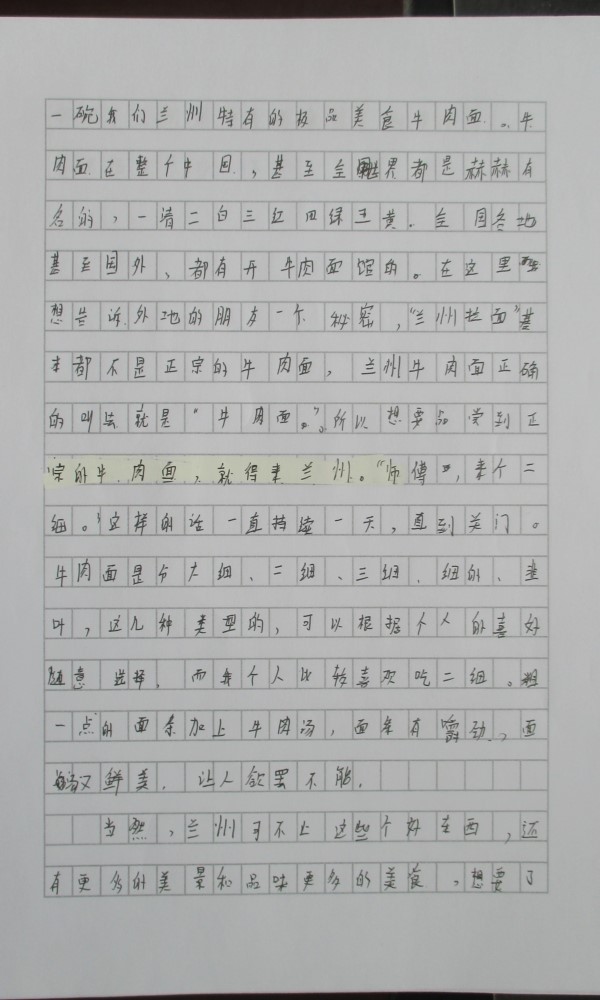 一碗我们兰州特有的极品美食牛肉面。牛
肉面在整个中国,甚至全世界都是赫赫有
名的,一清二白三红四绿五黄.全国各地
甚至国外、都有开牛肉面馆的。在这里
想告诉外地的朋友一个秘密,"兰州拉面"基
本都不是正宗的牛肉面,兰州牛肉面正确
的叫法就是"牛肉面"。所以想要品尝到正
宗的牛肉面,就得来兰州。"师傅,来个二
细。"这样的话一直持续一天,直到关门。
牛肉面是分大细、二细、三细、细的、韭
叶,这几种类型的,可以根据个人的喜好
随意选择.而我个人比较喜欢吃二细。粗
一点的面条加上牛肉汤,面条有嚼劲,面
汤又鲜美.让人欲罢不能.
当然,兰州可不止这些个好东西,还
有更多的美景和品味更多的美食,想要了